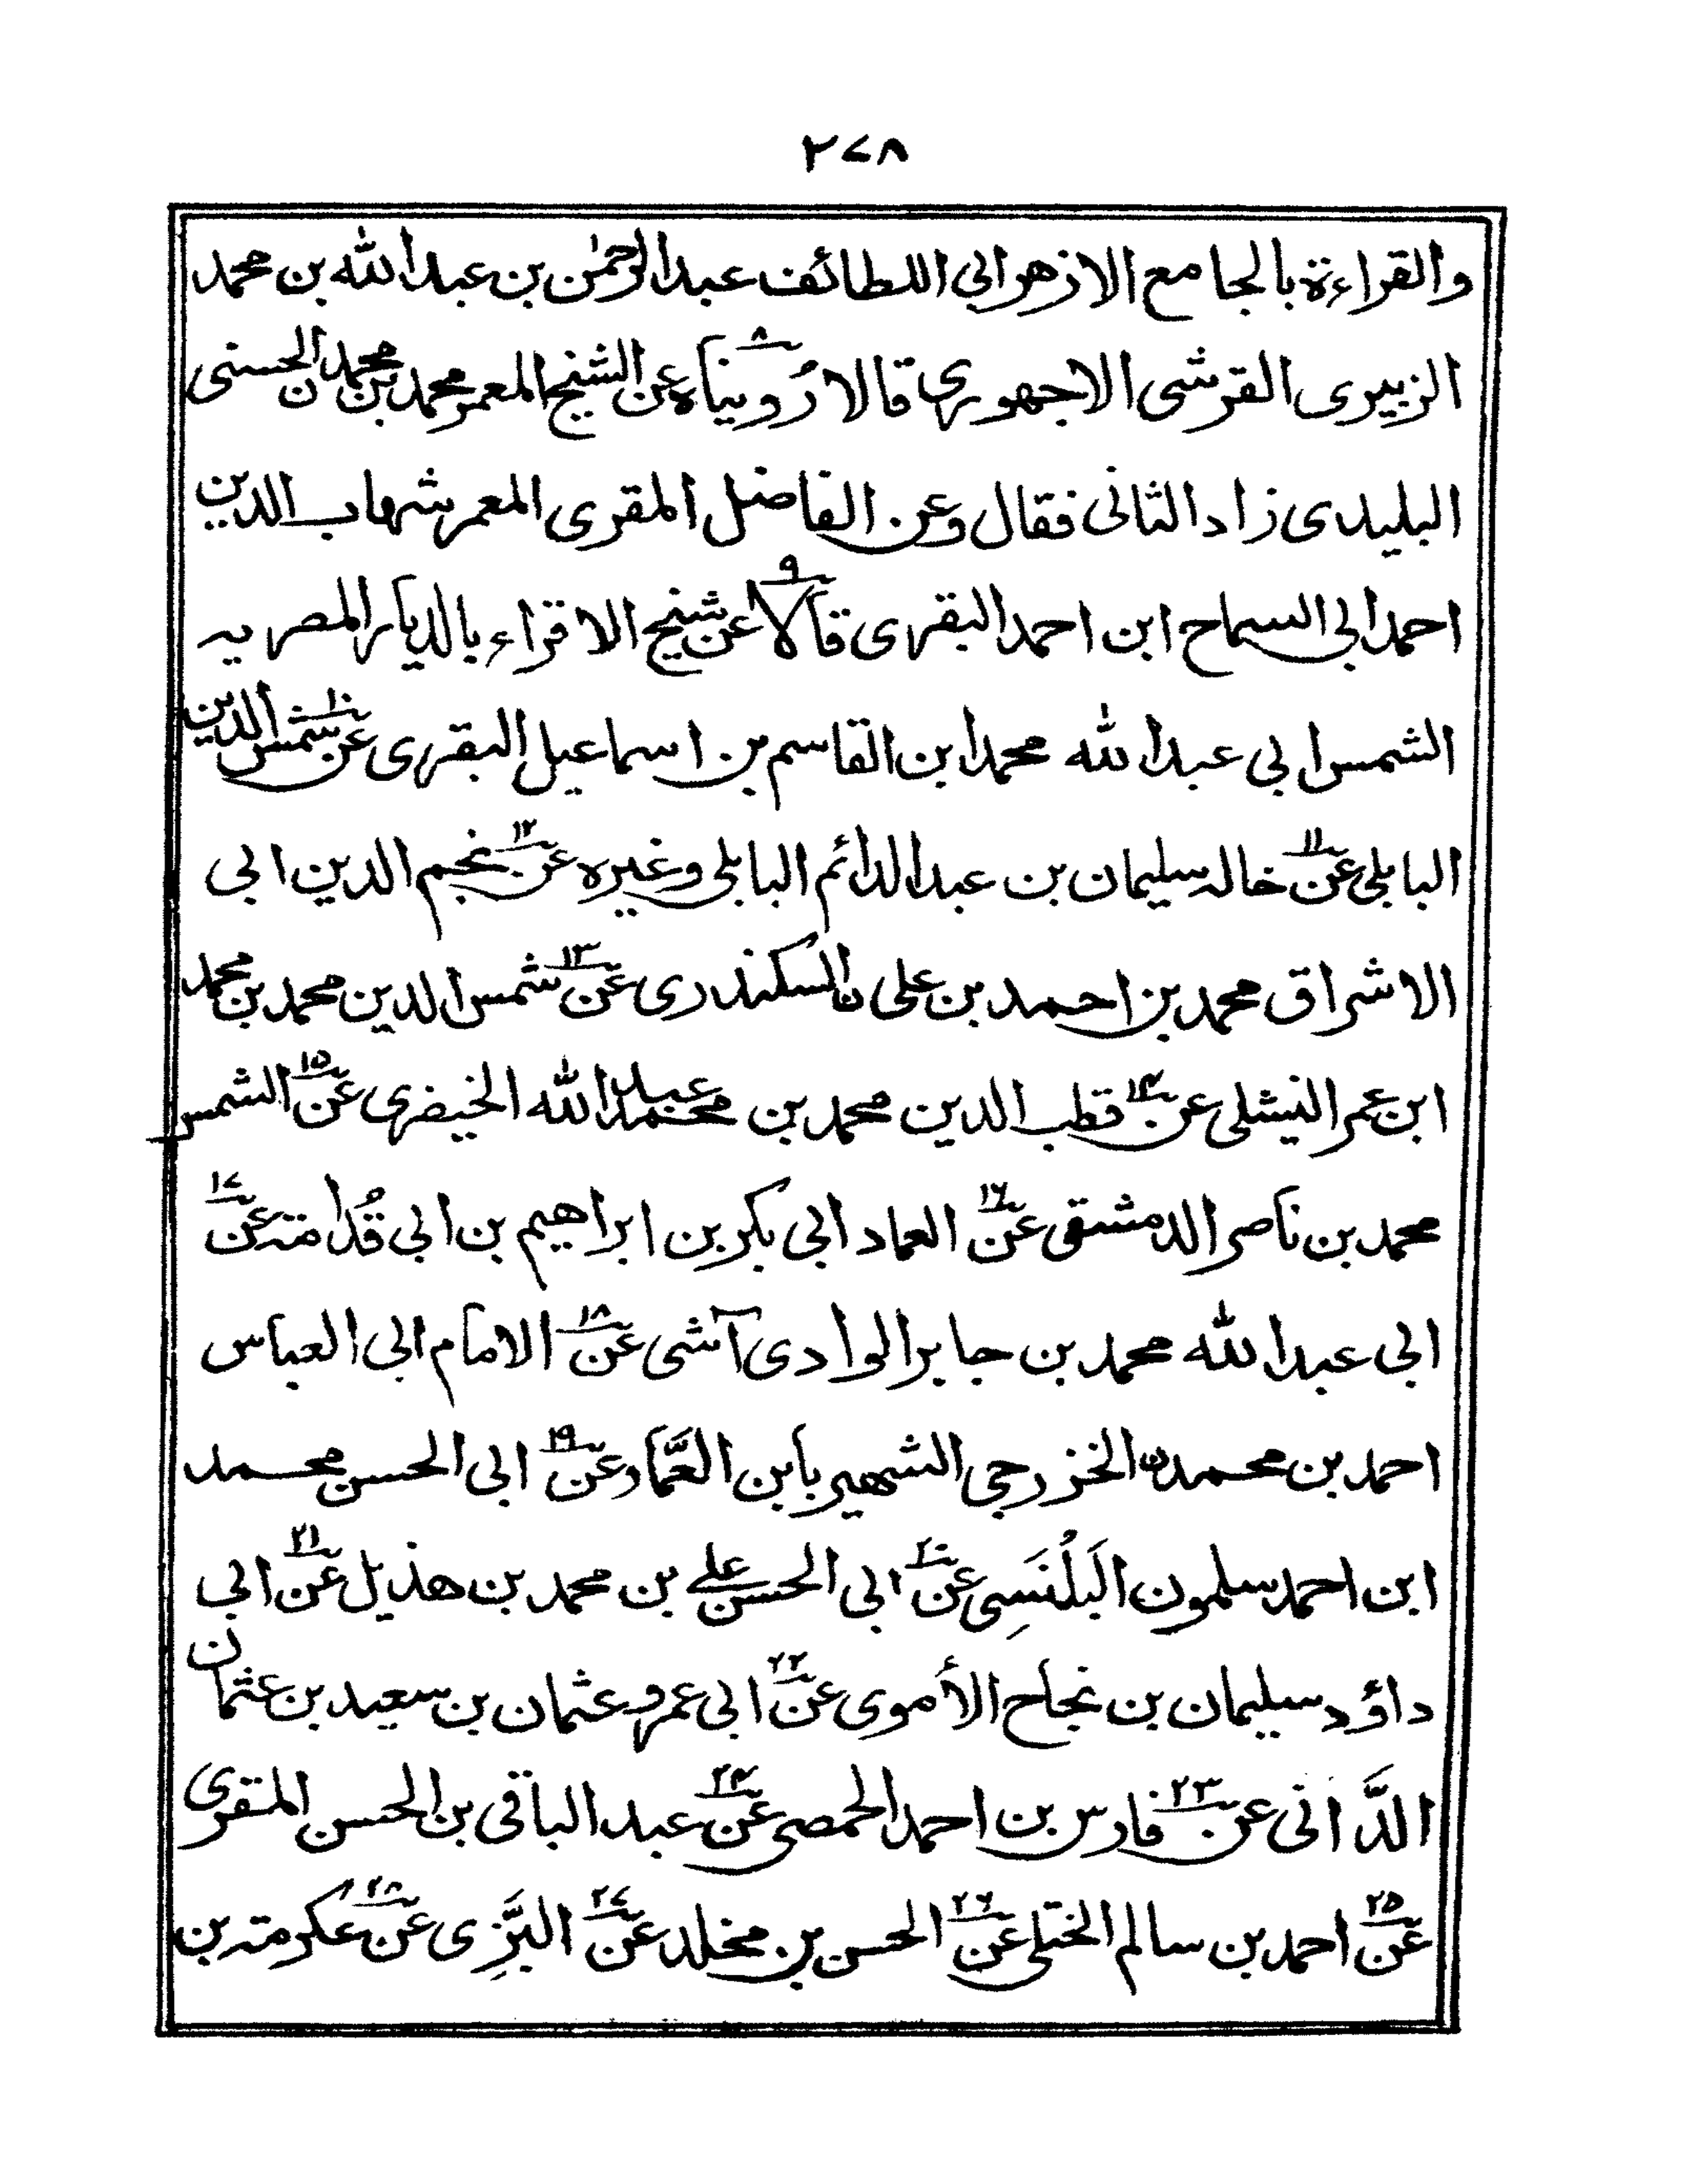 ٢٧٨
والقراءة بالجامع الازهر ابي اللطائف عبد الرحمٰن بن عبد الله بن محمد
الزبيرى القرشى الاجهورى قالا رُويناه ٨ عن الشيخ المعمر محمد بن محمدن الحسنى
البليدى زاد الثانى فقال وعن الفاضل المقرى المعمر شهاب الدين
احمد ابي السماح ابن احمد البقرى قالا ٩ عن شيخ الاقراء بالديار المصريه
الشمس ابي عبد الله محمد ابن القاسم بن اسماعيل البقرى ١٠ عن شمس الدين
البابلي ١١ عن خاله سليمان بن عبد الدائم البابلي وغيره ١٢ عن نجم الدين ابي
الاشراق محمد بن احمد بن على ن السكندرى ١٣ عن شمس الدين محمد بن محمد
ابن عمر النيشلى ١٤ عن قطب الدين محمد بن محمد عبد الله الخيضرى ١٥ عن الشمس
محمد بن ناصر الدمشقى ١٦ عن العماد ابي بكر بن ابراهيم بن ابي قُدامته ١٧ عن
ابي عبد الله محمد بن جابر الوادى آشى ١٨ عن الامام ابي العباس
احمد بن محمدن الخزرجى الشهير بابن العَّماد ١٩ عن ابى الحسن محمد
ابن احمد سلمون البَلُنَسِى ٢٠ عن ابى الحسن على بن محمد بن هذيل ٢١ عن ابي
داؤد سليمان بن نجاح الأموى ٢٢ عن ابى عمرو عثمان بن سعيد بن عثمان
الدَّانى ٢٣ عن فارس بن احمد الحمصى ٢٤ عن عبد الباقى بن الحسن المقرى
٢٥ عن احمد بن سالم الختلى ٢٦ عن الحسن بن مخلد ٢٧ عن البَزِّى ٢٨ عن عكرمته بن